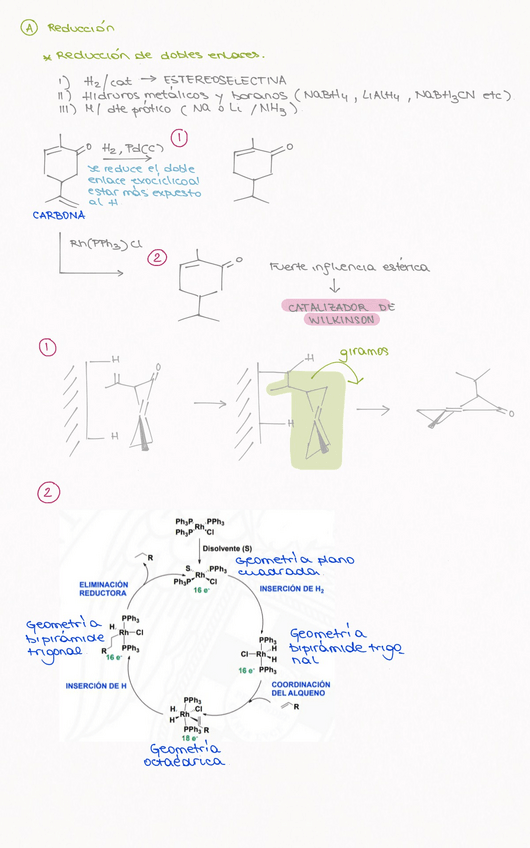 A Reducción
* Reducción de dobles enlaces.
I) H2/cat → ESTEREOSELECTIVA
II) Hidruros metálicos y boranos (NaBH4, LiAlH4, NaBH3CN etc)
III) M/ dte prótico (Na o Li /NH3)
H2, Pd(C)
1
O
O
se reduce el doble
enlace exocíclico al
estar más expuesto
al H
CARBONA
Rh(PPh3)Cl
2
O
Fuerte influencia estérica
↓
CATALIZADOR DE
WILKINSON
1
giramos
H
O
H
H
H
O
2
Ph3P PPh3
Rh
Ph3P Cl
Disolvente (S)
S PPh3
Rh
Ph3P Cl
16 e-
Geometría plano
cuadrada
INSERCIÓN DE H2
R
ELIMINACIÓN
REDUCTORA
Geometría
bipirámide
trigonal
PPh3
H
Rh Cl
R
PPh3
16 e-
PPh3
H
Cl Rh
H
PPh3
16 e-
Geometría
bipirámide trigo
nal
INSERCIÓN DE H
COORDINACIÓN
DEL ALQUENO
R
PPh3
H Cl
Rh
H
R
PPh3
18 e-
Geometría
octaédrica